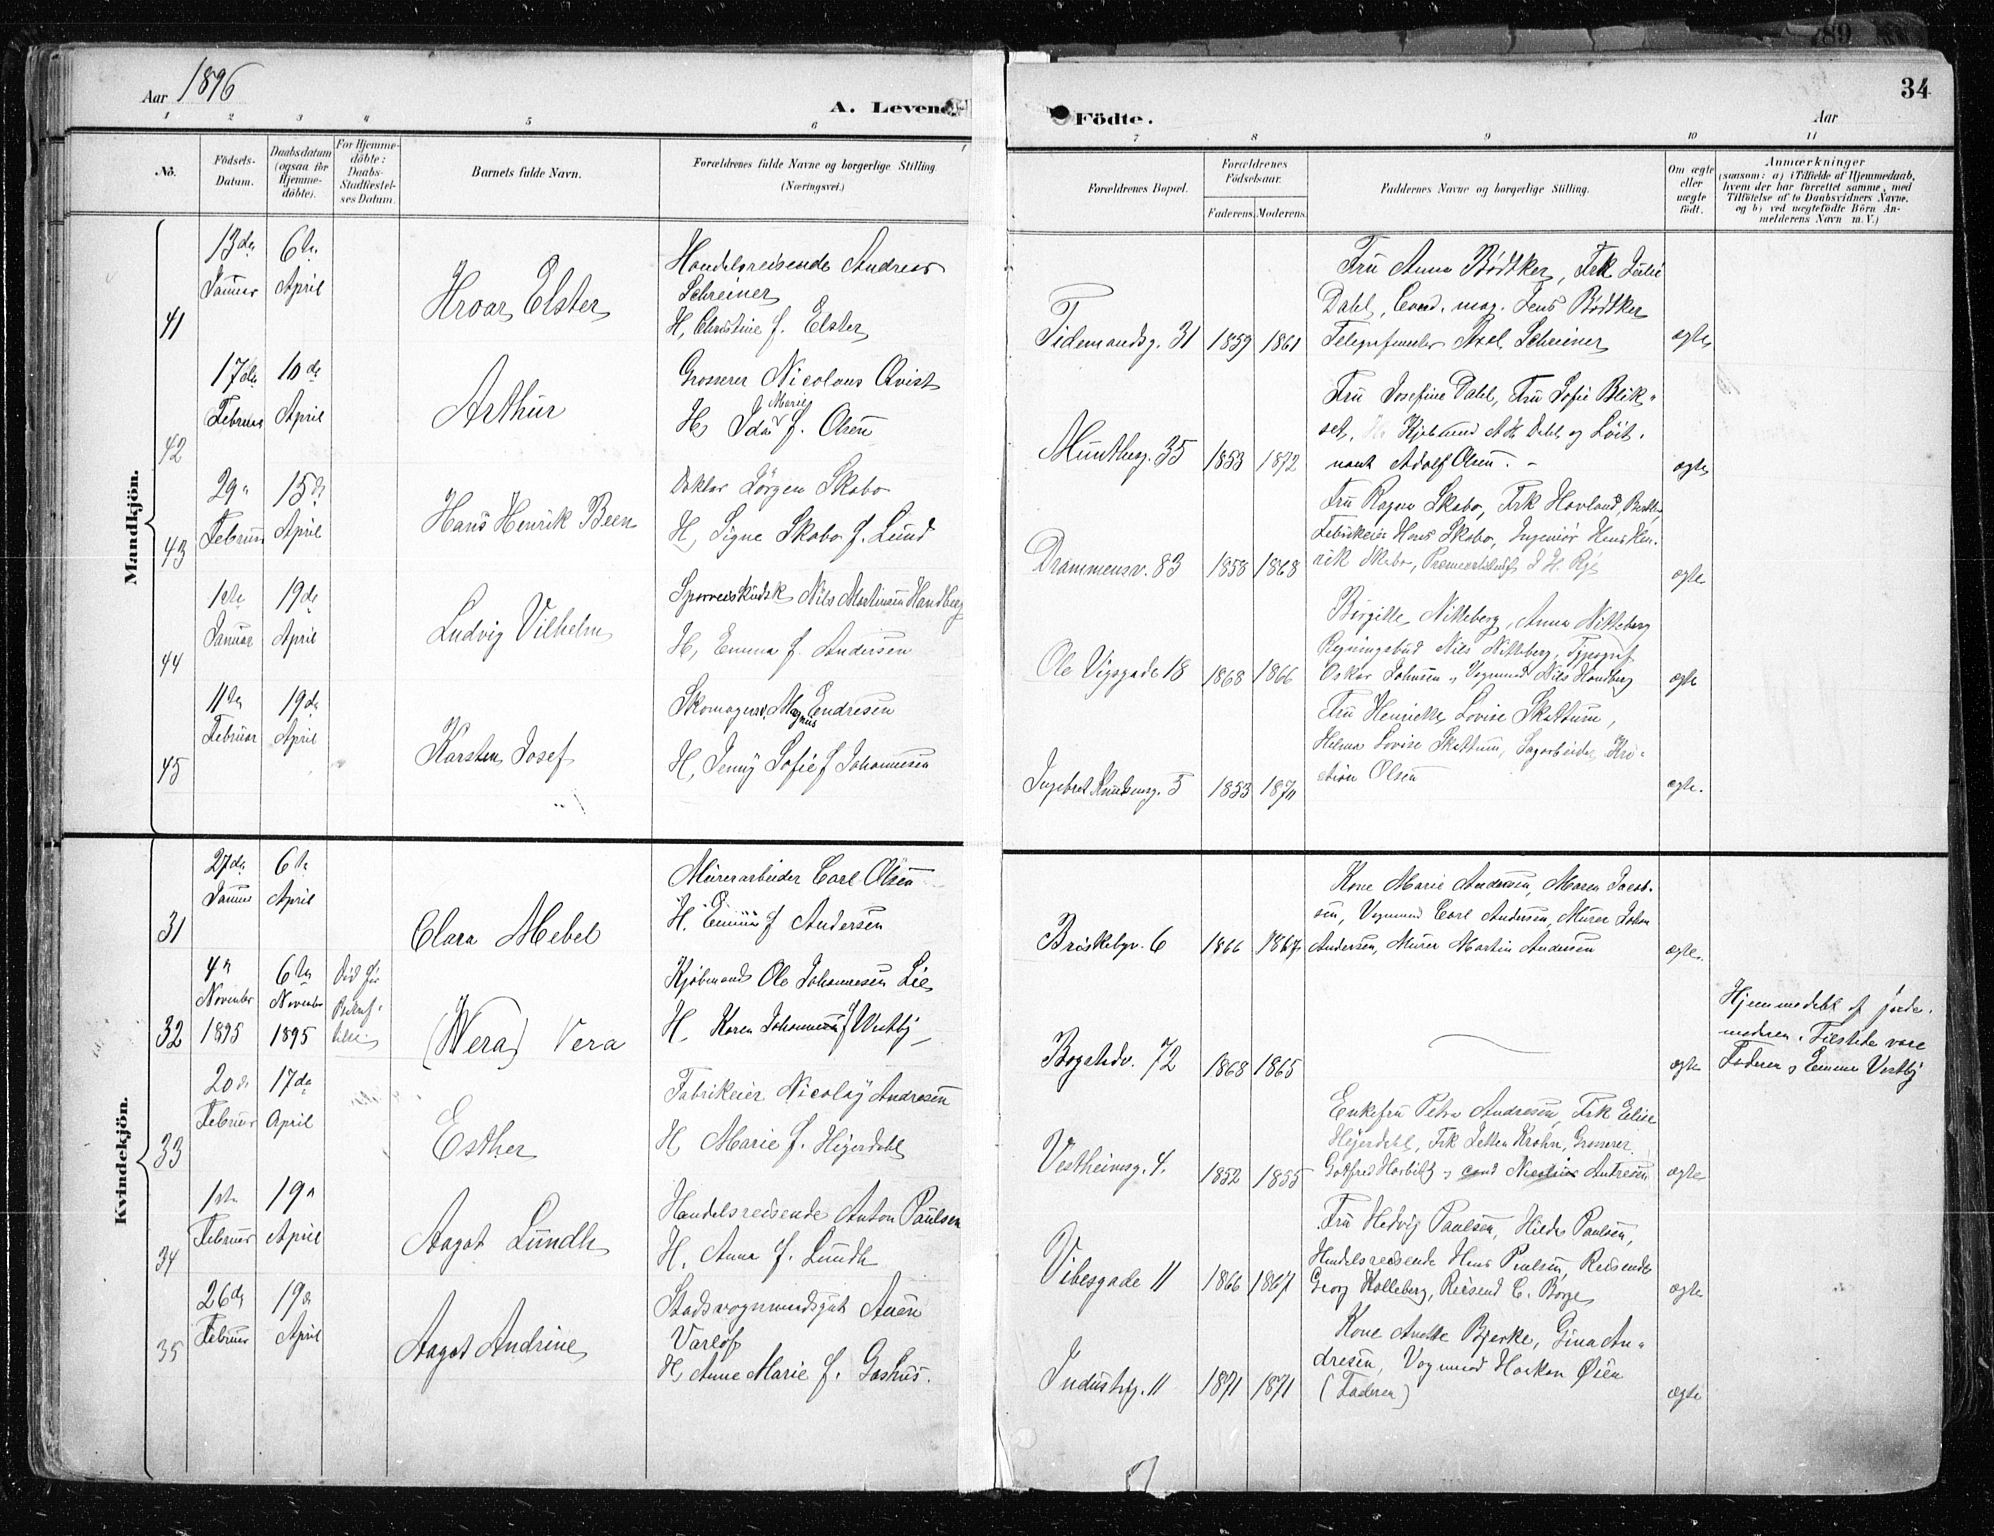 Aar 1896
A. Levende
Födte.
Aar
34
89
1 2 3 4 5 6 7 8 9 10 11
No.
Födsels-Datum.
Daabsdatum (ogsaa for Hjemme-döbte).
For Hjemme-döbte: Daabs-Stadfæstel-ses Datum.
Barnets fulde Navn.
Forældrenes fulde Navne og borgerlige Stilling.
(Næringsvei.)
Forældrenes Bopæl.
Forældrenes Födselsaar.
Faderens. Moderens.
Faddernes Navne og borgerlige Stilling.
Om ægte eller uægte födt.
Anmærkninger
(saasom: a) i Tilfælde af Hjemmedaab,
hvem der har forrettet samme, med
Tilföielse af to Daabsvidners Navne.
og b) ved uægtefödte Börn An-
melderens Navn m. V.)
Mandkjön.
41
13de Januar
6te April
Hroar Elster
Handelsreisende Andreas
Schreiner
H, Christine f. Elster
Tidemandsg. 31
1859 1861
Fru Anna Bødtker, Frk
Dahl, Cand. mag. Jens Bødtker
Axel Schreiner
ægte
42
17de Februar
10de April
Arthur
Grosserer Nicolaus Qvist
H, Ida Marie f. Olsen
Munthesg. 35
1853 1872
Fru Josefine Dahl, Fru Sofie Blik-
set, Dahl og Løit-
nant Adolf Olsen. -
ægte
43
29 Februar
15de April
Hans Henrik Been
Doktor Jörgen Skabo
H, Signe Skabo f. Lund
Drammensv. 83
1858 1868
Fru Ragna Skabo, Frk Hovland,
Fabrikeier Hans Skabo, Ingeniør Hans Hen-
rik Skabo,
ægte
44
1ste Januar
19de April
Ludvig Vilhelm
Sporveiskudsk Nils Martinsen Handberg
H, Emma f. Andersen
Ole Vigsgade 18
1868 1866
Birgitte Nitteberg, Anna Nitteberg
Regningsbud Nils Nitteberg, Typograf
Oskar Johnsen, Vognmand Nils Handberg
ægte
45
11te Februar
19de April
Karsten Josef
Skomagersv. Magnus Endresen
H, Jenny Sofie f Johannesen
Ingebret Knudsensg. 5
1853
Fru Henriette Lovise Skattum,
Helma Lovise Skattum, Sagarbeider Kri-
stian Olsen
ægte.
Kvindekjön.
31
27de Januar
6te April
Clara Mebel
Murerarbeider Carl Olsen
H. Emma f Andersen
Briskebyv. 6
1866 1867
Kone Marie Andersen, Maren Jacob-
sen, Vognmand Carl Andersen, Murer Johan
Andersen, Murer Martin Andersen
ægte.
32
4de November 1895
6te November 1895
Død før
(Wera) Vera
Kjøbmand Ole Johannesen Lie
H. Karen Johannesen f Vestby
Bogstadv. 72
1868 1865
ægte
Hjemmedøbt af Jorde-
moderen. Tilstede vare
Faderen og Emma Vestby
33
20de Februar
17de April
Esther
Fabrikeier Nicolay Andresen
H, Marie f. Heyerdahl
Vestheimsg. 4.
1852 1855
Enkefru Petra Andresen, Frk Elise
Heyerdahl, Frk Krohn, Grosserer
Godfred cand Nicolai Andresen
ægte
34
1ste Februar
19 April
Aagot Lundh
Handelsreisende Anton Paulsen
H, Anna f. Lundh
Vibesgade 11
1866 1867
Fru Hedvig Paulsen, Hilda Paulsen,
Handelsreisende Hans Paulsen, Reisende
Georg Kolleberg, Reisend C. Borge
ægte
35
26de Februar
19de April
Aagot Andrine
Stadsvognmandsgut Auen
Varlof
H, Anne Marie f. Gashus.
Industrig. 11
1871 1871
Kone Anette Bjerke, Gina An-
dresen, Vognmand Haakon Øien
(Faderen)
ægte